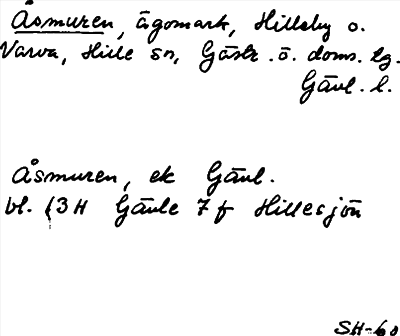 Åsmuren, ägomark, Hillsby o.
Varva, Hille sn, Gästr. ö. doms. tg.
Gävl. l.
Åsmuren, ek Gävl.
bl. (13H Gävle 7f Hillesjön
SH-60